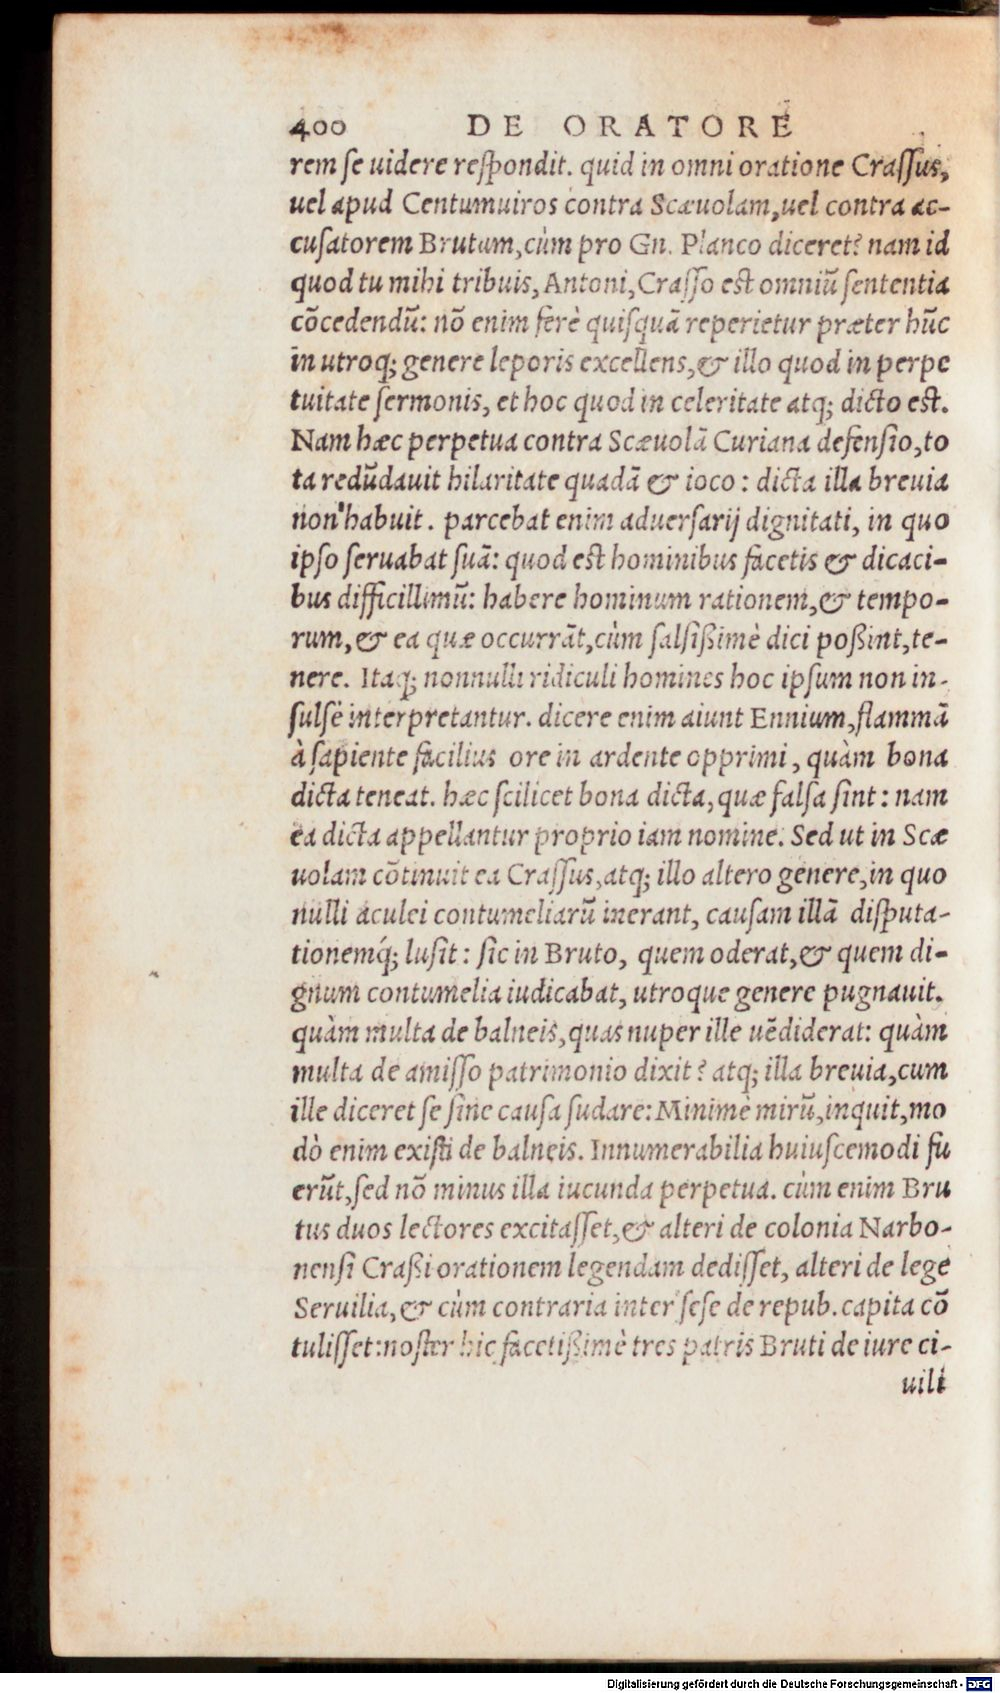 400 DE ORATORE
rem ſe uidere reſpondit. quid in omni oratione Craſſus,
uel apud Centumuiros contra Scæuolam, uel contra ac-
cuſatorem Brutum, cùm pro Gn. Planco diceret? nam id
quod tu mihi tribuis, Antoni, Craſſo est omniũ ſententia
cõcedendũ: nõ enim ferè quiſquã reperietur præter hũc
in utroq; genere leporis excellens, & illo quod in perpe
tuitate ſermonis, et hoc quod in celeritate atq; dicto est.
Nam hæc perpetua contra Scæuolã Curiana defenſio, to
ta redũdauit hilaritate quadã & ioco: dicta illa breuia
non habuit. parcebat enim aduerſarij dignitati, in quo
ipſo ſeruabat ſuã: quod est hominibus facetis & dicaci-
bus difficillimũ: habere hominum rationem, & tempo-
rum, & ea quæ occurrãt, cùm ſalſißimè dici poßint, te-
nere. Itaq; nonnulli ridiculi homines hoc ipſum non in-
ſulſè interpretantur. dicere enim aiunt Ennium, flammã
à ſapiente facilius ore in ardente opprimi, quàm bona
dicta teneat. hæc ſcilicet bona dicta, quæ falſa ſint: nam
ea dicta appellantur proprio iam nomine. Sed ut in Scæ
uolam cõtinuit ea Craſſus, atq; illo altero genere, in quo
nulli aculei contumeliarũ inerant, cauſam illã diſputa-
tionemq́; luſit: ſic in Bruto, quem oderat, & quem di-
gnum contumelia iudicabat, utroque genere pugnauit.
quàm multa de balneis, quas nuper ille uẽdiderat: quàm
multa de amiſſo patrimonio dixit? atq; illa breuia, cum
ille diceret ſe ſine cauſa ſudare: Minimè mirũ, inquit, mo
dò enim existi de balneis. Innumerabilia huiuſcemodi fu
erũt, ſed nõ minus illa iucunda perpetua. cùm enim Bru
tus duos lectores excitaſſet, & alteri de colonia Narbo-
nenſi Craßi orationem legendam dediſſet, alteri de lege
Seruilia, & cùm contraria inter ſeſe de repub. capita cõ
tuliſſet: noster hic facetißimè tres patris Bruti de iure ci-
uili
Digitalisierung gefördert durch die Deutsche Forschungsgemeinschaft - DFG